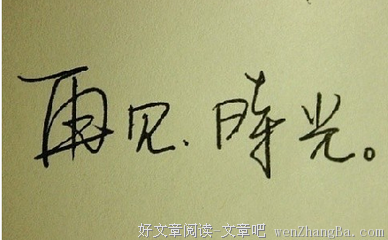 再见、时光。
好文章阅读-文章吧 wenZhangBa.com